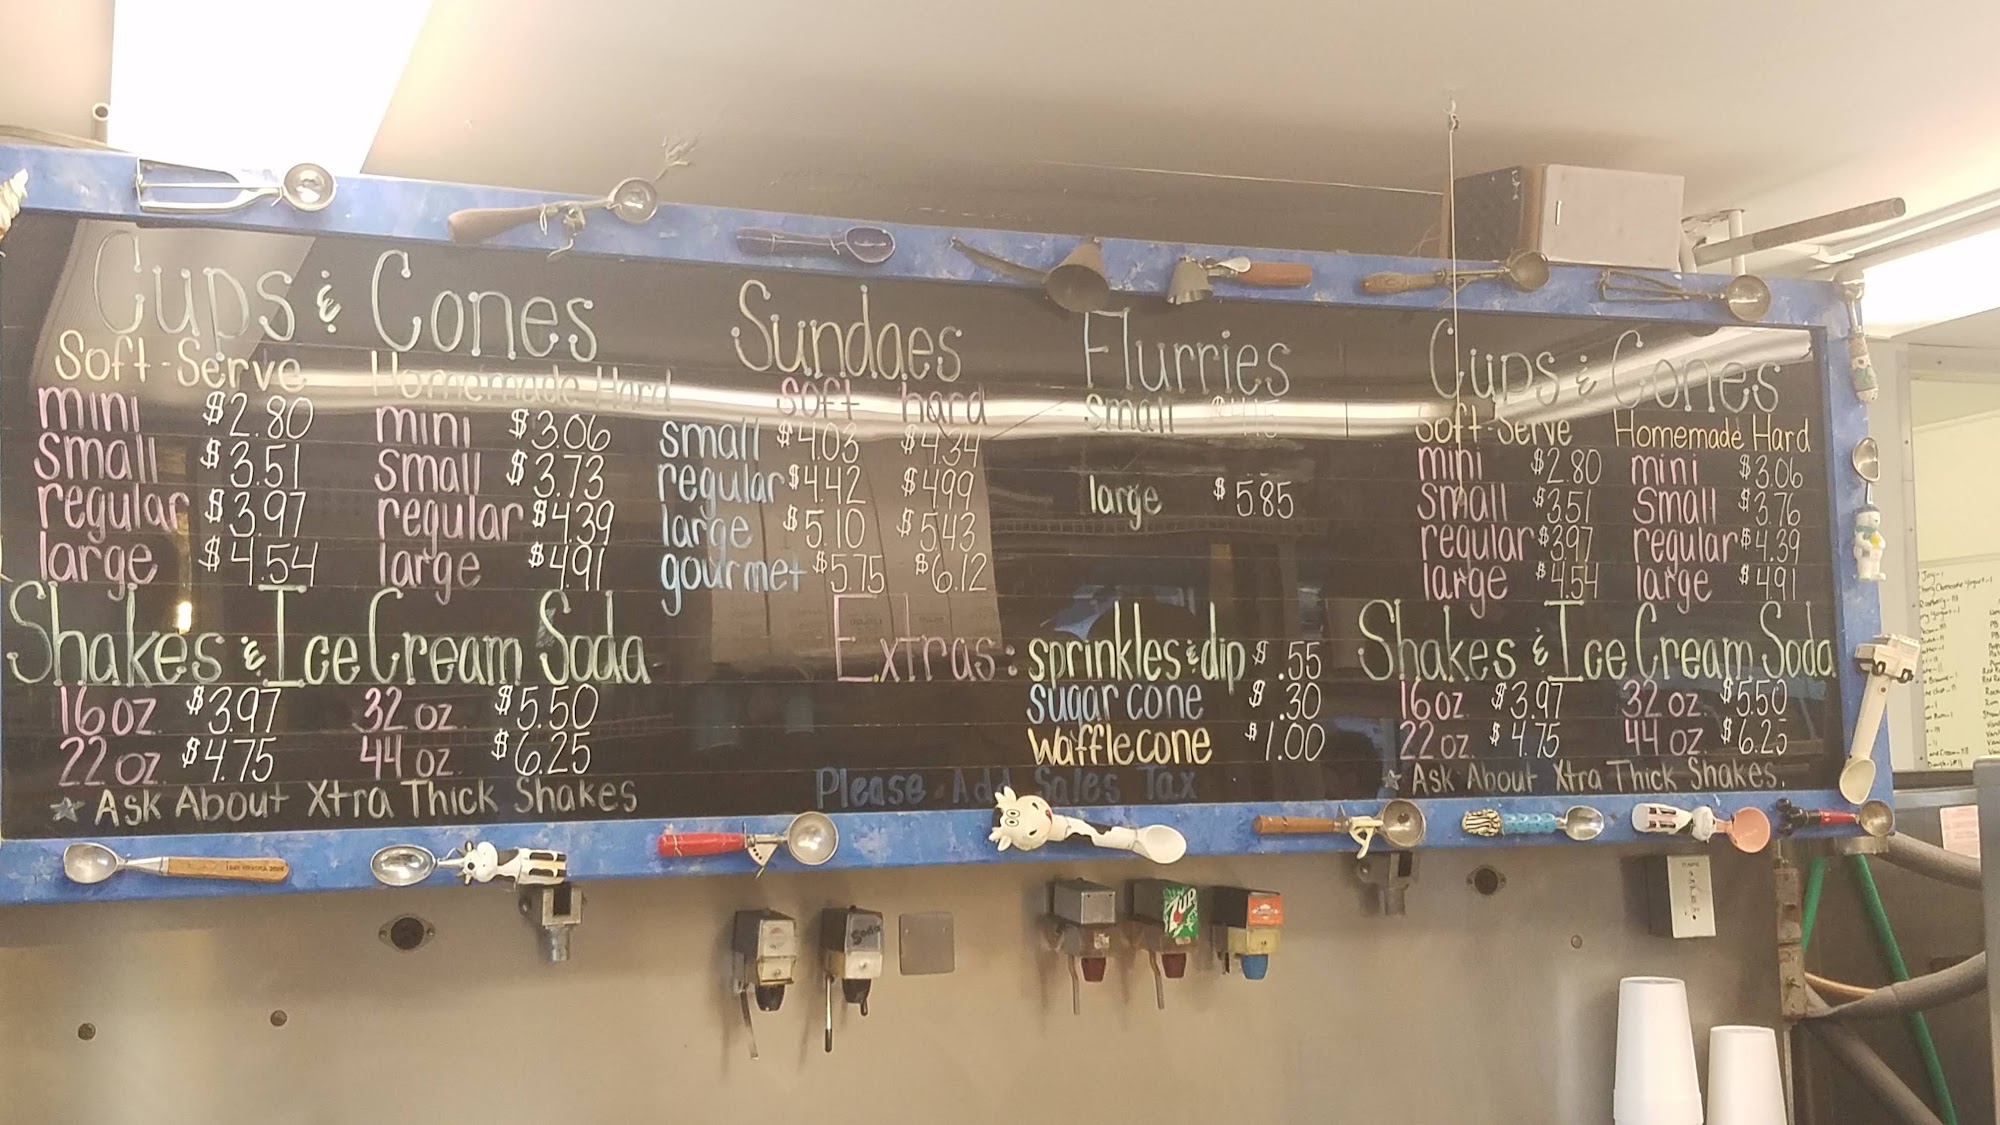 Cups & Cones
Soft-Serve Homemade Hard
mini $2.80 mini $3.06
small $3.51 small $3.73
regular $3.97 regular $4.39
large $4.54 large $4.91
Shakes & Ice Cream Soda
16 oz. $3.97 32 oz. $5.50
22 oz. $4.75 44 oz. $6.25
Ask About Xtra Thick Shakes
Sundaes
soft hard
small $4.03 $4.34
regular $4.42 $4.99
large $5.10 $5.43
gourmet $5.75 $6.12
Flurries
small
large $5.85
Extras: sprinkles & dip $.55
sugar cone $.30
waffle cone $1.00
Please Add Sales Tax
Cups & Cones
Soft-Serve Homemade Hard
mini $2.80 mini $3.06
small $3.51 small $3.76
regular $3.97 regular $4.39
large $4.54 large $4.91
Shakes & Ice Cream Soda
16 oz. $3.97 32 oz. $5.50
22 oz. $4.75 44 oz. $6.25
Ask About Xtra Thick Shakes.
Soda
7UP